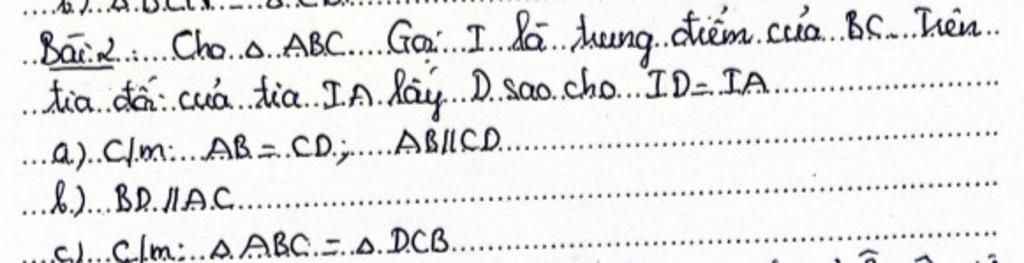 Bài 2: Cho △ ABC. Gọi I là trung điểm của BC. Trên
tia đối của tia IA lấy D sao cho ID = IA
a) C/m: AB = CD; AB // CD
b) BD // AC
c) C/m: △ ABC = △ DCB